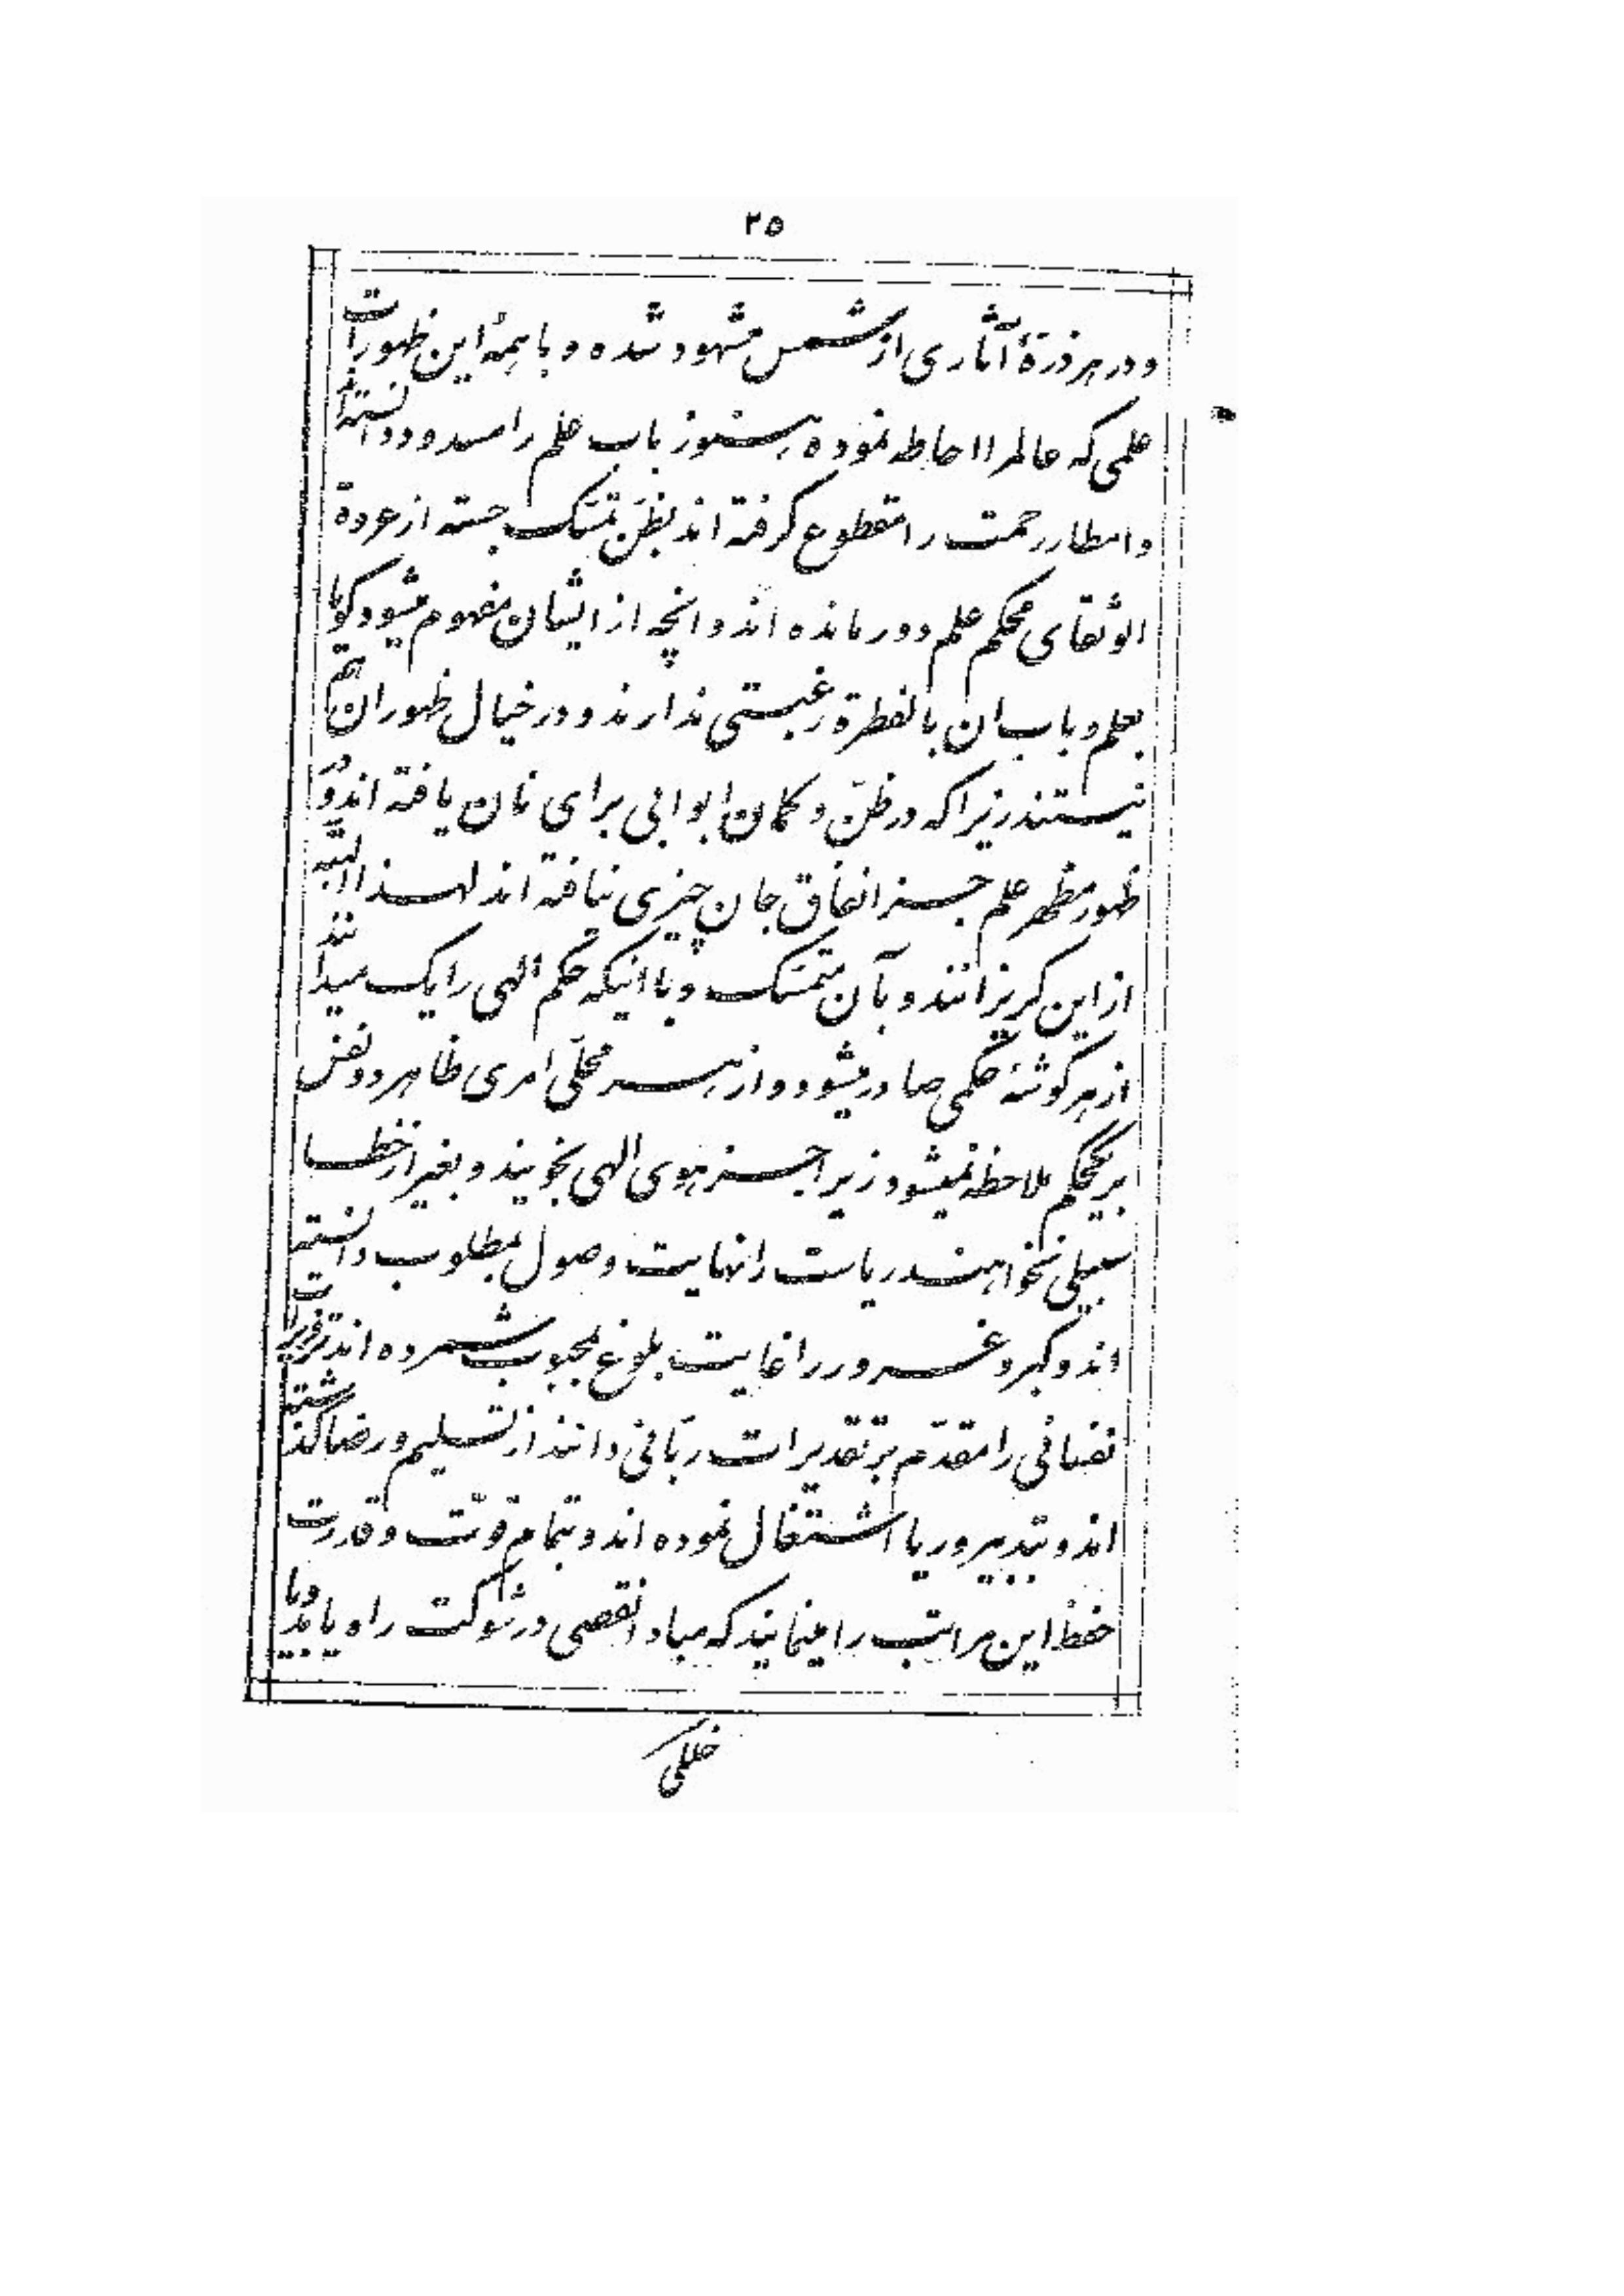 ۲۵
و در هر ذرهٔ آثاری از شمس مشهود شده و با همهٔ این ظهورات
علمی که عالم را احاطه نموده هنوز باب علم را مسدود دانسته‌اند
و امطار رحمت را مقطوع گرفته اند بظنّ تمسّک جسته از عروة
الوثقای محکم علم دور مانده اند و انچه از ایشان مفهوم میشود گویا
بعلم و باب ان بالفطرة رغبتی ندارند و در خیال ظهور ان هم
نیستند زیرا که در ظنّ و گمان ابوابی برای نان یافته اند و در
ظهور مظهر علم جز انفاق جان چیزی نیافته اند لهذا البته
از این گریزانند و بآن متمسّک و با اینکه حکم الهی را یک میدانند
از هر گوشهٔ حکمی صادر میشود و از هر محلّی امری ظاهر دو نفس
بر یکحکم ملاحظه نمیشود زیرا جز هوی الهی نجویند و بغیر از خطا
سبیلی نخواهند ریاست را نهایت وصول بمطلوب دانسته
اند و کبر و غرور را غایت بلوغ بمحبوب شمرده اند تزویرات
نفسانی را مقدّم بر تقدیرات ربّانی دانند از تسلیم و رضا گذشته
اند و بتدبیر و ریا اشتغال نموده اند و بتمام قوّت و قدرت
حفظ این مراتب را مینمایند که مبادا نقصی در شوکت راه یابد و یا
خللی